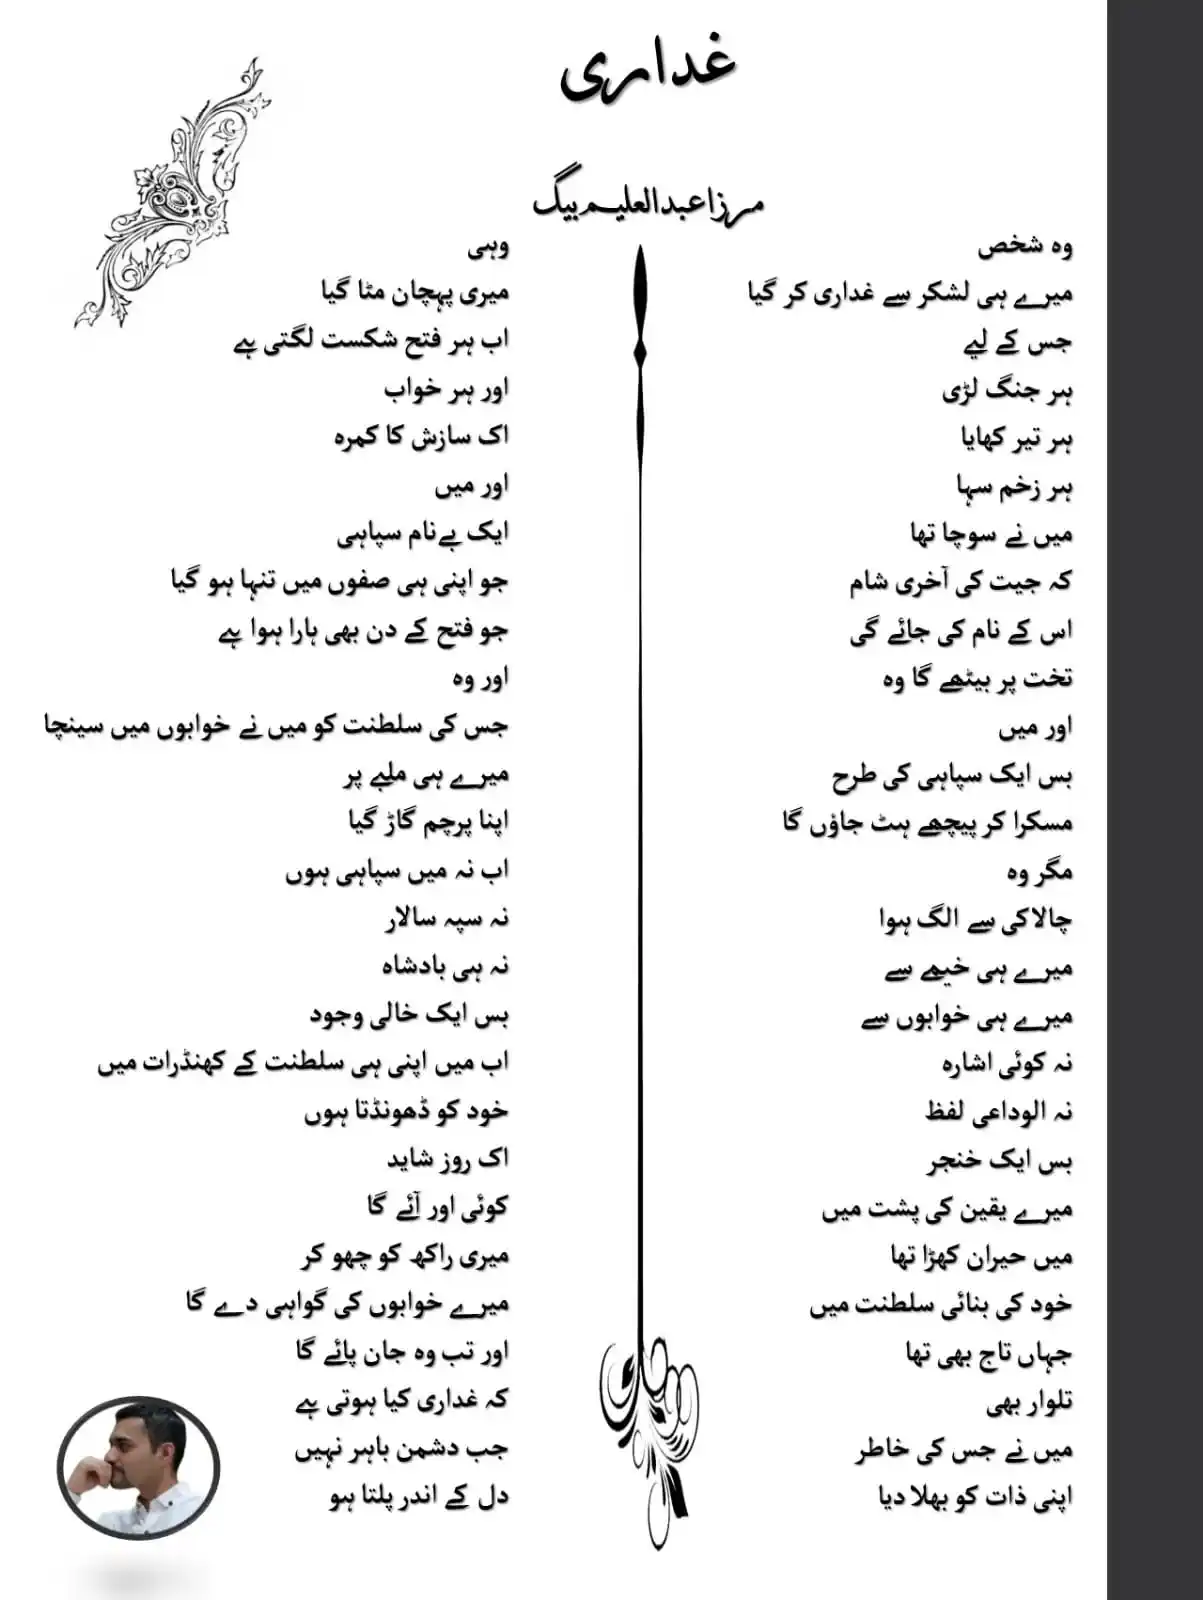 غداری
مرزا عبدالعلیم بیگ
وہ شخص
میرے ہی لشکر سے غداری کر گیا
جس کے لیے
ہر جنگ لڑی
ہر تیر کھایا
ہر زخم سہا
میں نے سوچا تھا
کہ جیت کی آخری شام
اس کے نام کی جائے گی
تخت پر بیٹھے گا وہ
اور میں
بس ایک سپاہی کی طرح
مسکرا کر پیچھے ہٹ جاؤں گا
مگر وہ
چالاکی سے الگ ہوا
میرے ہی خیمے سے
میرے ہی خوابوں سے
نہ کوئی اشارہ
نہ الوداعی لفظ
بس ایک خنجر
میرے یقین کی پشت میں
میں حیران کھڑا تھا
خود کی بنائی سلطنت میں
جہاں تاج بھی تھا
تلوار بھی
میں نے جس کی خاطر
اپنی ذات کو بھلا دیا
وہی
میری پہچان مٹا گیا
اب ہر فتح شکست لگتی ہے
اور ہر خواب
اک سازش کا کمرہ
اور میں
ایک بےنام سپاہی
جو اپنی ہی صفوں میں تنہا ہو گیا
جو فتح کے دن بھی ہارا ہوا ہے
اور وہ
جس کی سلطنت کو میں نے خوابوں میں سینچا
میرے ہی ملبے پر
اپنا پرچم گاڑ گیا
اب نہ میں سپاہی ہوں
نہ سپہ سالار
نہ ہی بادشاہ
بس ایک خالی وجود
اب میں اپنی ہی سلطنت کے کھنڈرات میں
خود کو ڈھونڈتا ہوں
اک روز شاید
کوئی اور آئے گا
میری راکھ کو چھو کر
میرے خوابوں کی گواہی دے گا
اور تب وہ جان پائے گا
کہ غداری کیا ہوتی ہے
جب دشمن باہر نہیں
دل کے اندر پلتا ہو